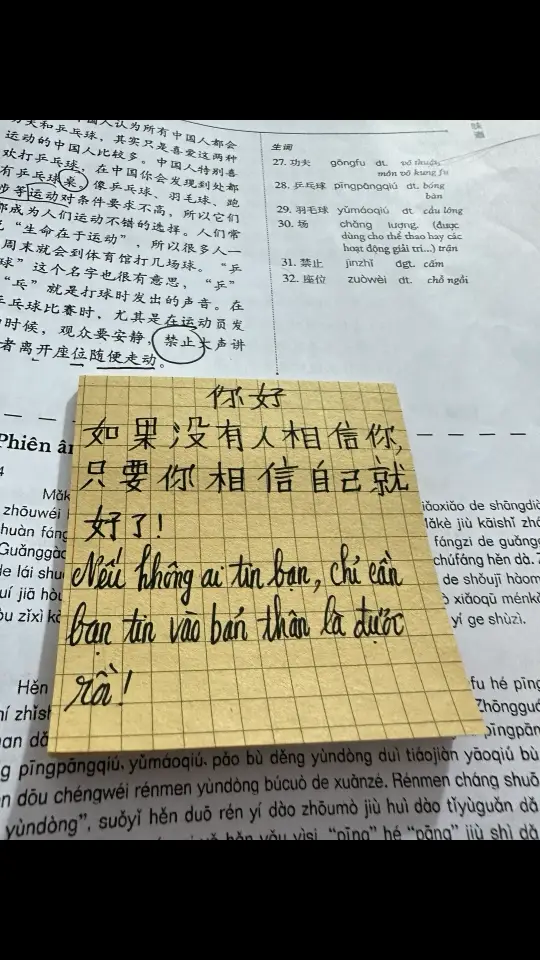 国人认为所有中国人都会
功夫和乒乓球，其实只是喜爱这两种
运动的中国人比较多。中国人特别喜
欢打乒乓球，在中国你会发现到处都
有乒乓球桌。像乒乓球、羽毛球、跑
步等运动对条件要求不高，所以它们
都成为人们运动不错的选择。人们常
“生命在于运动”，所以很多人一
周末就会到体育馆打几场球。“乒
球”这个名字也很有意思，“乒”
“乓”就是打球时发出的声音。在
乒乓球比赛时，尤其是在运动员发
时候，观众要安静，禁止大声讲
者离开座位随便走动。
生词
27. 功夫 gōngfu dt. võ thuật,
môn võ kung fu
28. 乒乓球 pīngpāngqiú dt. bóng
bàn
29. 羽毛球 yǔmáoqiú dt. cầu lông
30. 场 chǎng lượng. (được
dùng cho thể thao hay các
hoạt động giải trí...) trận
31. 禁止 jìnzhǐ đgt. cấm
32. 座位 zuòwèi dt. chỗ ngồi
你好
如果没有人相信你,
只要你相信自己就
好了!
Nếu không ai tin bạn, chỉ cần
bạn tin vào bản thân là được
rồi!
Phiên
4
Mǎk
zhōuwéi
huàn fáng
Guǎnggào
de lái shu
jiā
zìxì
xiǎoxiǎo de shāngdiàn
jiù kāishǐ
fángzi de guǎng
chúfáng hěn dà.
de shōujī
xiǎoqū
yí ge shùzì.
Hěn
zhǐsh
fu hé pīng
Zhōngguó
pīngpān
pīngpāngqiú, yǔmáoqiú, pǎo bù děng yùndòng duì tiáojiàn yāoqiú bù
dōu chéngwéi rénmen yùndòng búcuò de xuǎnzé. Rénmen cháng shuō
yùndòng”, suǒyǐ hěn duō rén yí dào zhōumò jiù huì dào tǐyùguǎn dǎ
hěn yǒu yìsi, “pīng” hé “pāng” jiù shì dǎ